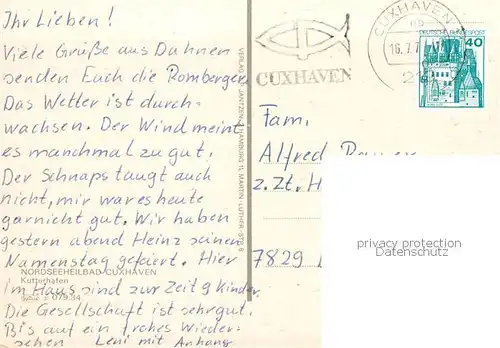 Ihr Lieben!
Viele Grüße aus Duhnen
senden Euch die Romberger
Das Wetter ist durch-
wachsen. Der Wind meint
es manchmal zu gut.
Der Schnaps taugt auch
nicht, mir war es heute
garnicht gut. Wir haben
gestern abend Heinz seinen
Namenstag gefeiert. Hier
im Haus sind zur Zeit 9 Kinder.
Die Gesellschaft ist sehr gut.
Bis auf ein frohes Wieder-
sehen Leni mit Anhang
NORDSEEHEILBAD CUXHAVEN
Kutterhafen
079.34
VERLAG JANTZEN, HAMBURG 11, MARTIN-LUTHER-STR. 8
CUXHAVEN
CUXHAVEN
16.7.7
DEUTSCHE BUNDESPOST
40
Fam.
Alfred
z. Zt. H
7829
privacy protection
Datenschutz